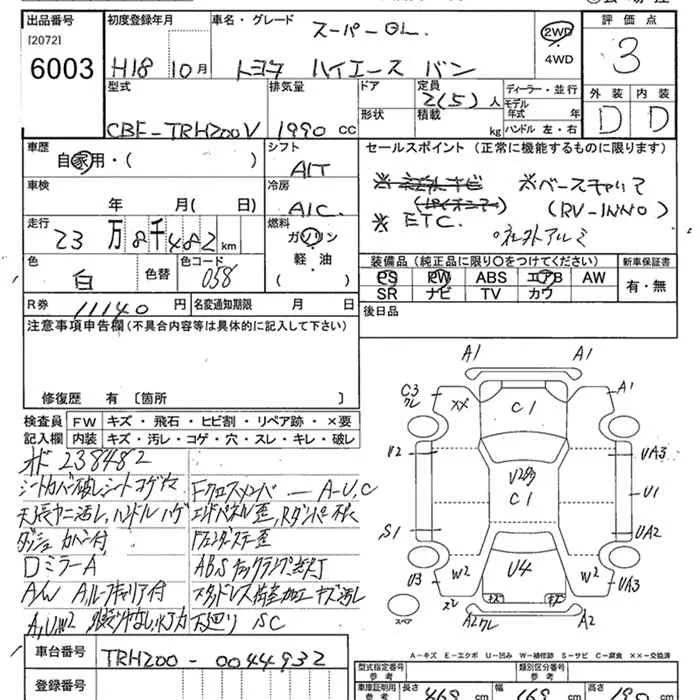 出品番号
[2072]
6003
初度登録年月
H18 10月
車名・グレード
スーパーGL
トヨタ ハイエース バン
2WD
4WD
評価点
3
型式
CBF-TRH200V
排気量
1990 cc
ドア
形状
定員
2(5)人
積載
kg
ディーラー・並行
モデル
年式 年
ハンドル 左・右
外装
内装
D
D
車歴
自家用・( )
シフト
A/T
セールスポイント (正常に機能するものに限ります)
車検
年 月( 日)
冷房
A/C
※ベースキャリア
(RV-INNO)
※ETC.
社外アルミ
走行
23万8千482 km
燃料
ガソリン
軽油
( )
色
白
色替
色コード
058
装備品 (純正品に限り○をつけてください)
新車保証書
PS PW ABS エアB AW
SR ナビ TV カワ
有・無
R券
11140 円
名変通知期限 月 日
後日品
注意事項申告欄(不具合内容等は具体的に記入して下さい)
修復歴 有 〔箇所 〕
検査員
記入欄
FW キズ・飛石・ヒビ割・リペア跡・×要
内装 キズ・汚レ・コゲ・穴・スレ・キレ・破レ
オド 238482
シートカバー破レ シートコゲ穴
天張ヤニ汚レ,ハンドルハゲ
ダッシュ カバー付
DミラーA
A/W A,ルーフキャリア付
A,U,W2
Fクロスメンバー A-U,C
エンドパネル歪,
Fフェンダステー歪
ABSチェックランプ点灯
キズ汚レ
下廻り SC
A1
A1
C3
クレ
XX
A1
C1
U2
U2多
C1
UA3
U1
S1
UA2
U3
W2
U4
W2
UA3
スペア
A2
クレ
A2
A-キズ E-エクボ U-凹み W-補修跡 S-サビ C-腐食 ××-交換済
車台番号
TRH200-0044932
登録番号
型式指定番号
参考
類別区分番号
参考
車庫証明用
参考
長さ
469 cm
幅
169 cm
高さ
198 cm